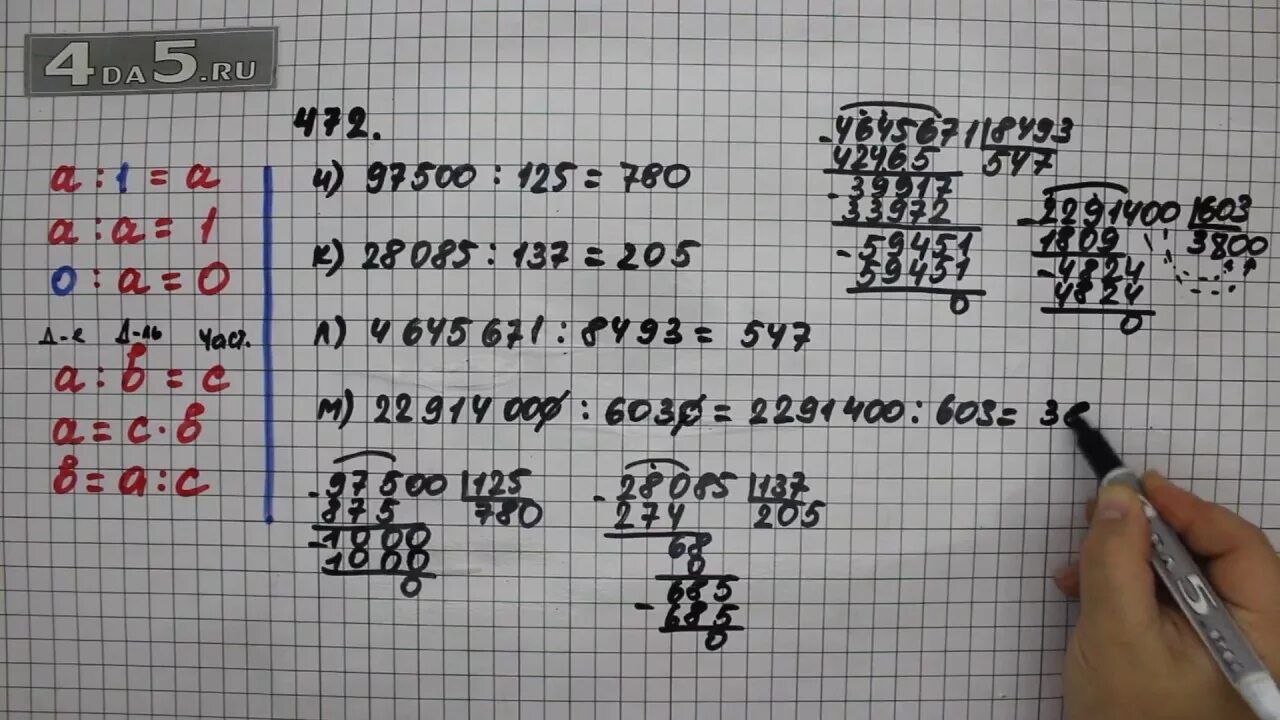 4DA5.RU
472.
a : 1 = a
a : a = 1
0 : a = 0
Д-е Д-ль Част.
a : в = c
a = c · в
в = a : c
и) 97500 : 125 = 780
к) 28085 : 137 = 205
л) 4645671 : 8493 = 547
м) 22914000 : 6030 = 2291400 : 603 = 38
4645671 8493
42465 547
39917
33972
59451
59451
0
2291400 603
1809 3800
4824
4824
0
97500 125
875 780
1000
1000
0
28085 137
274 205
68
0
685
685
0